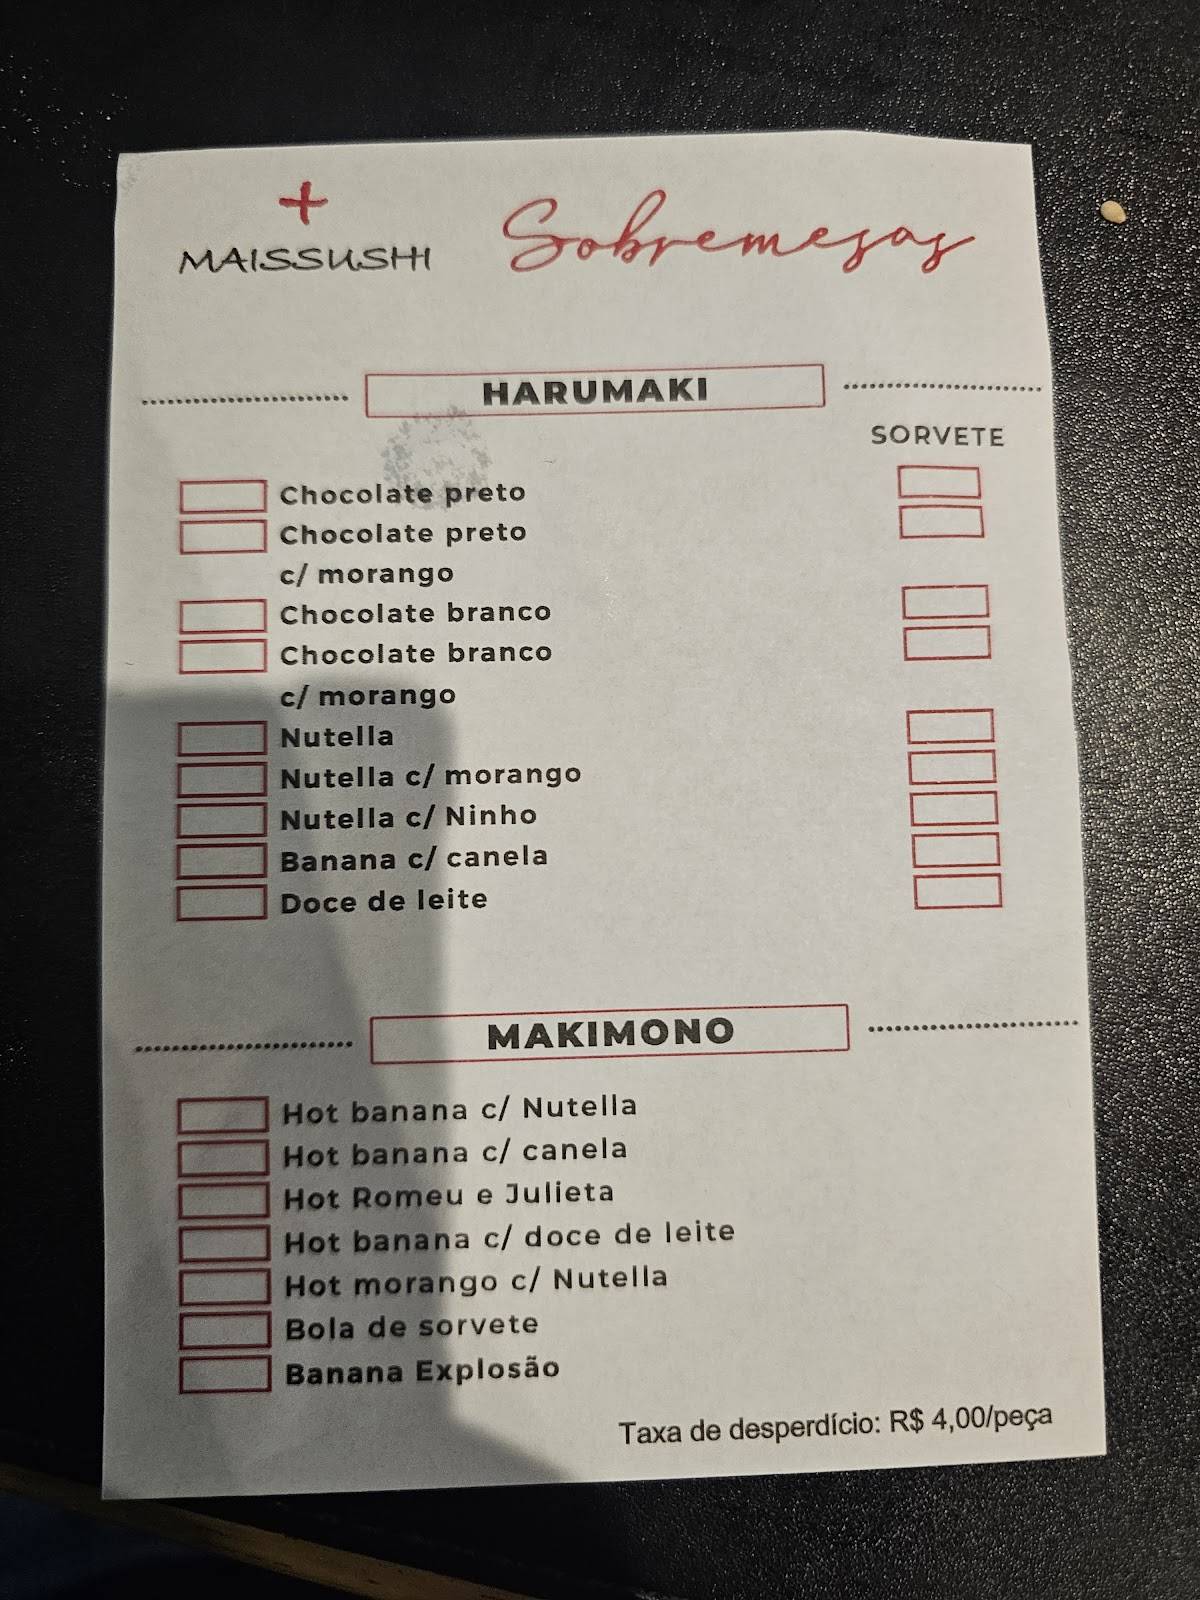 +
MAISSUSHI
Sobremesas
HARUMAKI
SORVETE
Chocolate preto
Chocolate preto
c/ morango
Chocolate branco
Chocolate branco
c/ morango
Nutella
Nutella c/ morango
Nutella c/ Ninho
Banana c/ canela
Doce de leite
MAKIMONO
Hot banana c/ Nutella
Hot banana c/ canela
Hot Romeu e Julieta
Hot banana c/ doce de leite
Hot morango c/ Nutella
Bola de sorvete
Banana Explosão
Taxa de desperdício: R$ 4,00/peça